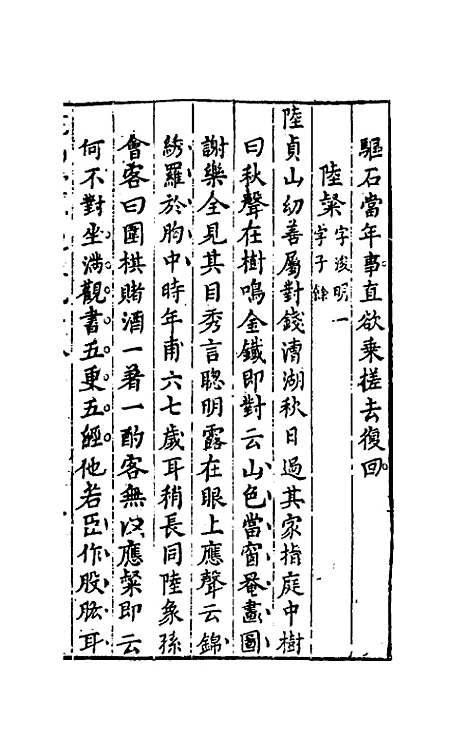 驅石當年事直欲乘槎去復回
陸粲字浚明一字子餘
陸貞山幼善屬對錢漕湖秋日過其家指庭中樹
曰秋聲在樹鳴金鐵即對云山色當窗卷畫圖
謝樂全見其目秀言聰明露在眼上應聲云錦
綉羅於胸中時年甫六七歲耳稍長同陸象孫
會客曰圍棋賭酒一着一酌客無以應粲即云
何不對坐漏觀書五更五經他若臣作股肱耳